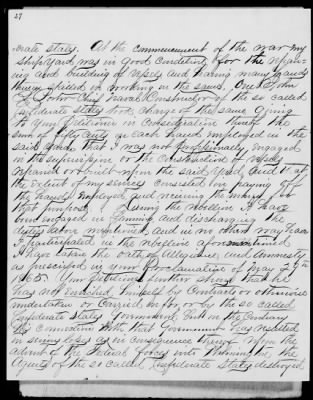 27
erate States. At the commencement of the war my
Ship Yard was in good condition for the repair-
ing and building of vessels and having many hands
there skilled in working in the same. One John
L. Porter Chief Naval Constructor of the so called
Confederate States took charge of the same giving
to your Petitioner in consideration thereof the
sum of fifty cents on each hand employed in the
said yard that I was not professionally engaged
in the supervision or the construction of vessels
repaired or built upon the said yard and that
the extent of my services consisted in paying off
the hands employed and receiving the money for
that purpose and during the rebellion I have
been engaged in and discharging the
duties above mentioned and in no other way have
I participated in the rebellion aforementioned
I have taken the oath of Allegiance and Amnesty
as prescribed in your Proclamation of May 29th
1865. Your Petitioner further shows that he
has not enriched himself by contracts or otherwise
undertaken or carried on for or by the so called
Confederate States Government but on the contrary
his connection with that Government has resulted
in severe losses as in consequence thereof upon the
advent of the Federal forces into Wilmington the
Agents of the so called Confederate States destroyed